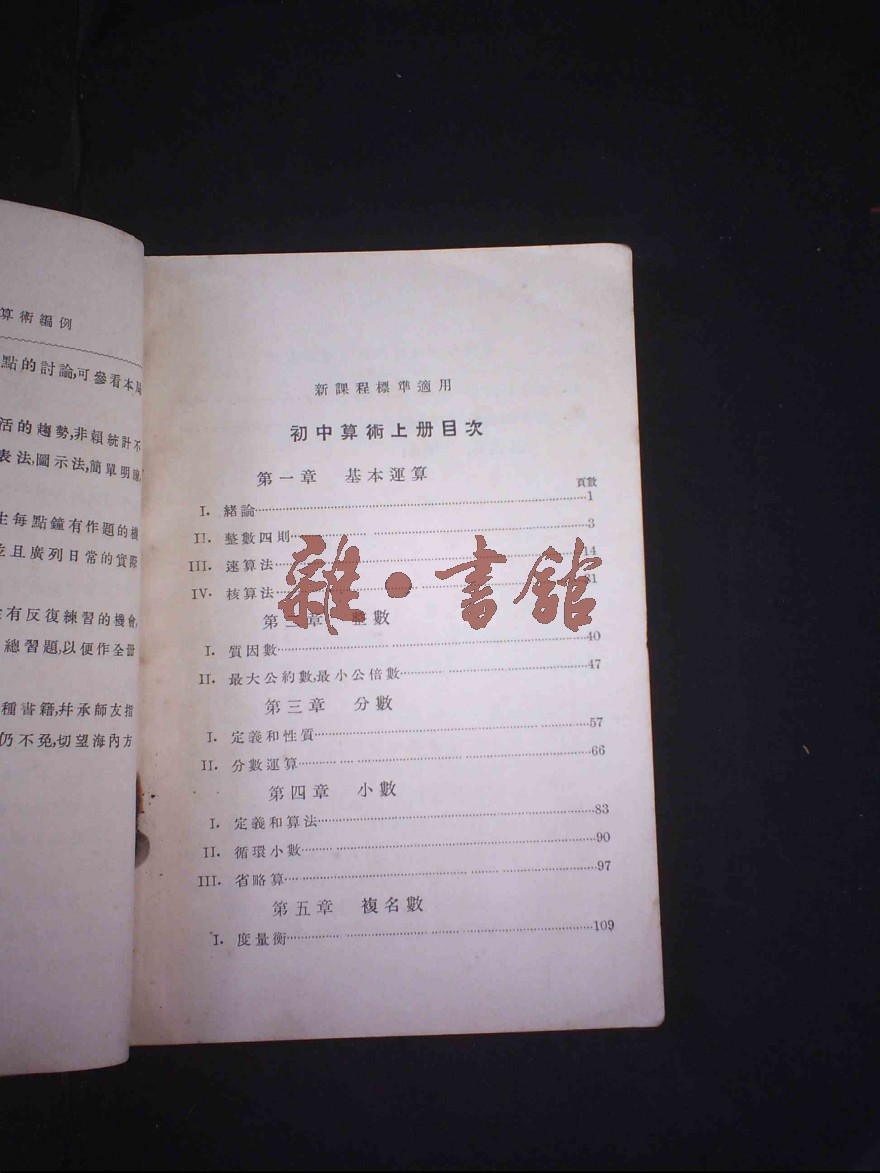 算術編例
點的討論,可參看本局
活的趨勢,非賴統計不
表法,圖示法,簡單明瞭,
生每點鐘有作題的機
並且廣列日常的實際
有反復練習的機會,
總習題,以便作全冊
種書籍,幷承師友指
仍不免,切望海內方
新課程標準適用
初中算術上册目次
第一章 基本運算
頁數
I. 緒論 1
II. 整數四則 3
III. 速算法 14
IV. 核算法 31
第二章 整數
I. 質因數 40
II. 最大公約數,最小公倍數 47
第三章 分數
I. 定義和性質 57
II. 分數運算 66
第四章 小數
I. 定義和算法 83
II. 循環小數 90
III. 省略算 97
第五章 複名數
I. 度量衡 109
雜·書館